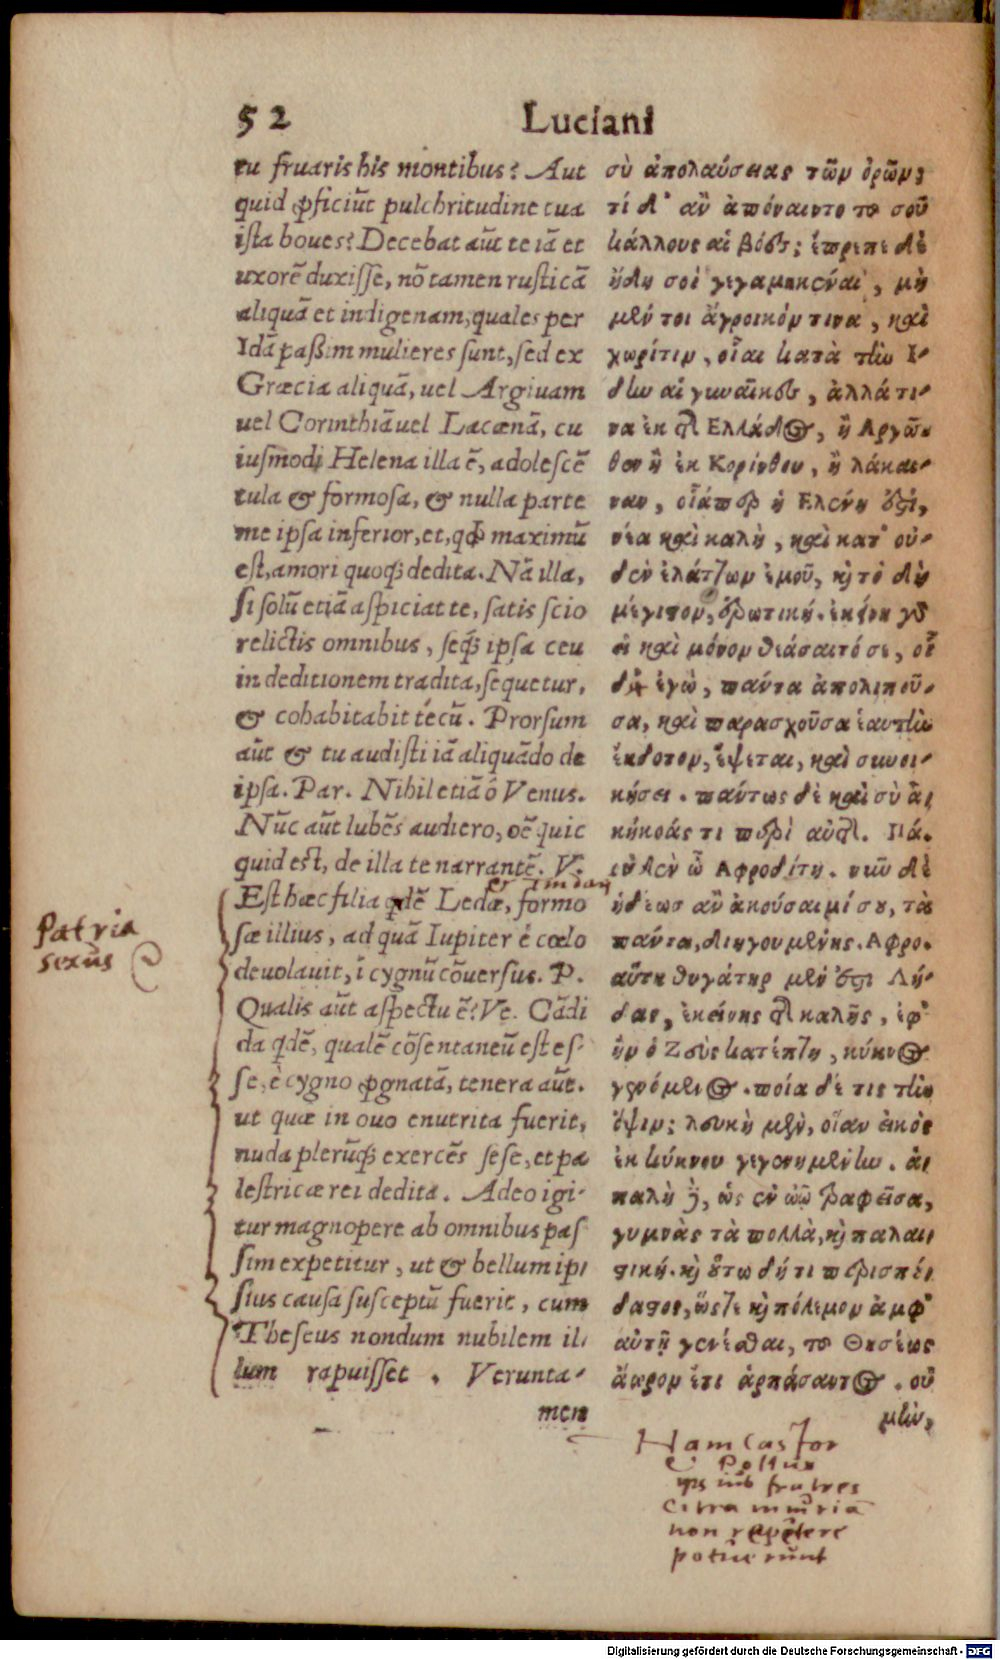 52
Luciani
tu fruaris his montibus? Aut
quid ꝓficiūt pulchritudine tua
ista boues? Decebat aūt te iā et
uxorē duxisse, nō tamen rusticā
aliquā et indigenam, quales per
Idā passim mulieres sunt, sed ex
Græcia aliquā, uel Argiuam
uel Corinthiā uel Lacænā, cu
iusmodi Helena illa ē, adolescē
tula & formosa, & nulla parte
me ipsa inferior, et, qđ maximū
est, amori quoq; dedita. Nā illa,
si solū etiā aspiciat te, satis scio
relictis omnibus, seq; ipsa ceu
in deditionem tradita, sequetur,
& cohabitabit tecū. Prorsum
aūt & tu audisti iā aliquādo de
ipsa. Par. Nihil etiā ô Venus.
Nūc aūt lubēs audiero, oē quic
quid est, de illa te narrantē. V.
Est hæc filia qdē Ledæ, formo
sæ illius, ad quā Iupiter è cœlo
deuolauit, ī cygnū cōuersus. P.
Qualis aūt aspectu ē? Ve. Cādi
da qdē, qualē cōsentaneū est es-
se, è cygno ꝓgnatā, tenera aūt.
ut quæ in ouo enutrita fuerit,
nuda plerūq; exercēs sese, et pa
lestricæ rei dedita. Adeo igi-
tur magnopere ab omnibus pas
sim expetitur, ut & bellum ipi
sius causa susceptū fuerit, cum
Theseus nondum nubilem il-
lam rapuisset. Verunta-
men
σὺ ἀπολαύσειας τῶν ὀρῶν;
τί δ' ἂν ἀπόναιντο τοῦ σοῦ
κάλλους αἱ βόες; ἔπρεπε δὲ
ἤδη σοὶ γεγαμηκέναι, μὴ
μέν τοι ἄγροικόν τινα, καὶ
χωρίτιν, οἷαι κατὰ τὴν Ἴ-
δην αἱ γυναῖκες, ἀλλά τι-
να ἐκ τῆς Ἑλλάδος, ἢ Ἀργό-
θεν ἢ ἐκ Κορίνθου, ἢ λάκαι-
ναν, οἵαπερ ἡ Ἑλένη ἐστί,
νέα καὶ καλὴ, καὶ κατ' οὐ-
δὲν ἐλάττων ἐμοῦ, καὶ τὸ δὴ
μέγιστον, ἐρωτική. ἐκείνη γὰρ
εἰ καὶ μόνον θεάσαιτό σε, οἶ
δα ἐγὼ, πάντα ἀπολιποῦ-
σα, καὶ παρασχοῦσα ἑαυτὴν
ἔκδοτον, ἕψεται, καὶ συνοι-
κήσει. πάντως δὲ καὶ σὺ ἀ-
κήκοάς τι περὶ αὐτῆς. Πά.
οὐδὲν ὦ Ἀφροδίτη. νῦν δὲ
ἡδέως ἂν ἀκούσαιμί σου, τὰ
πάντα, διηγουμένης. Ἀφρο.
αὕτη θυγάτηρ μέν ἐστι Λή-
δας, ἐκείνης τῆς καλῆς, ἐφ'
ἣν ὁ Ζεὺς κατέπτη, κύκνος
γενόμενος. ποία δέ τις τὴν
ὄψιν; λευκὴ μὲν, οἵαν εἰκὸς
ἐκ κύκνου γεγενημένην. ἁ-
παλὴ δὲ, ὡς ἐν ὠῷ τραφεῖσα,
γυμνὰς τὰ πολλὰ, καὶ παλαι
στική. καὶ οὕτω δή τι περισπού
δαστος, ὥστε καὶ πόλεμον ἀμφ'
αὐτῇ γενέσθαι, τοῦ Θησέως
ἄωρον ἔτι ἁρπάσαντος. οὐ
μὴν,
Patria
sexus
Nam Castor
& Pollux
fratres
non repetere
potuerunt